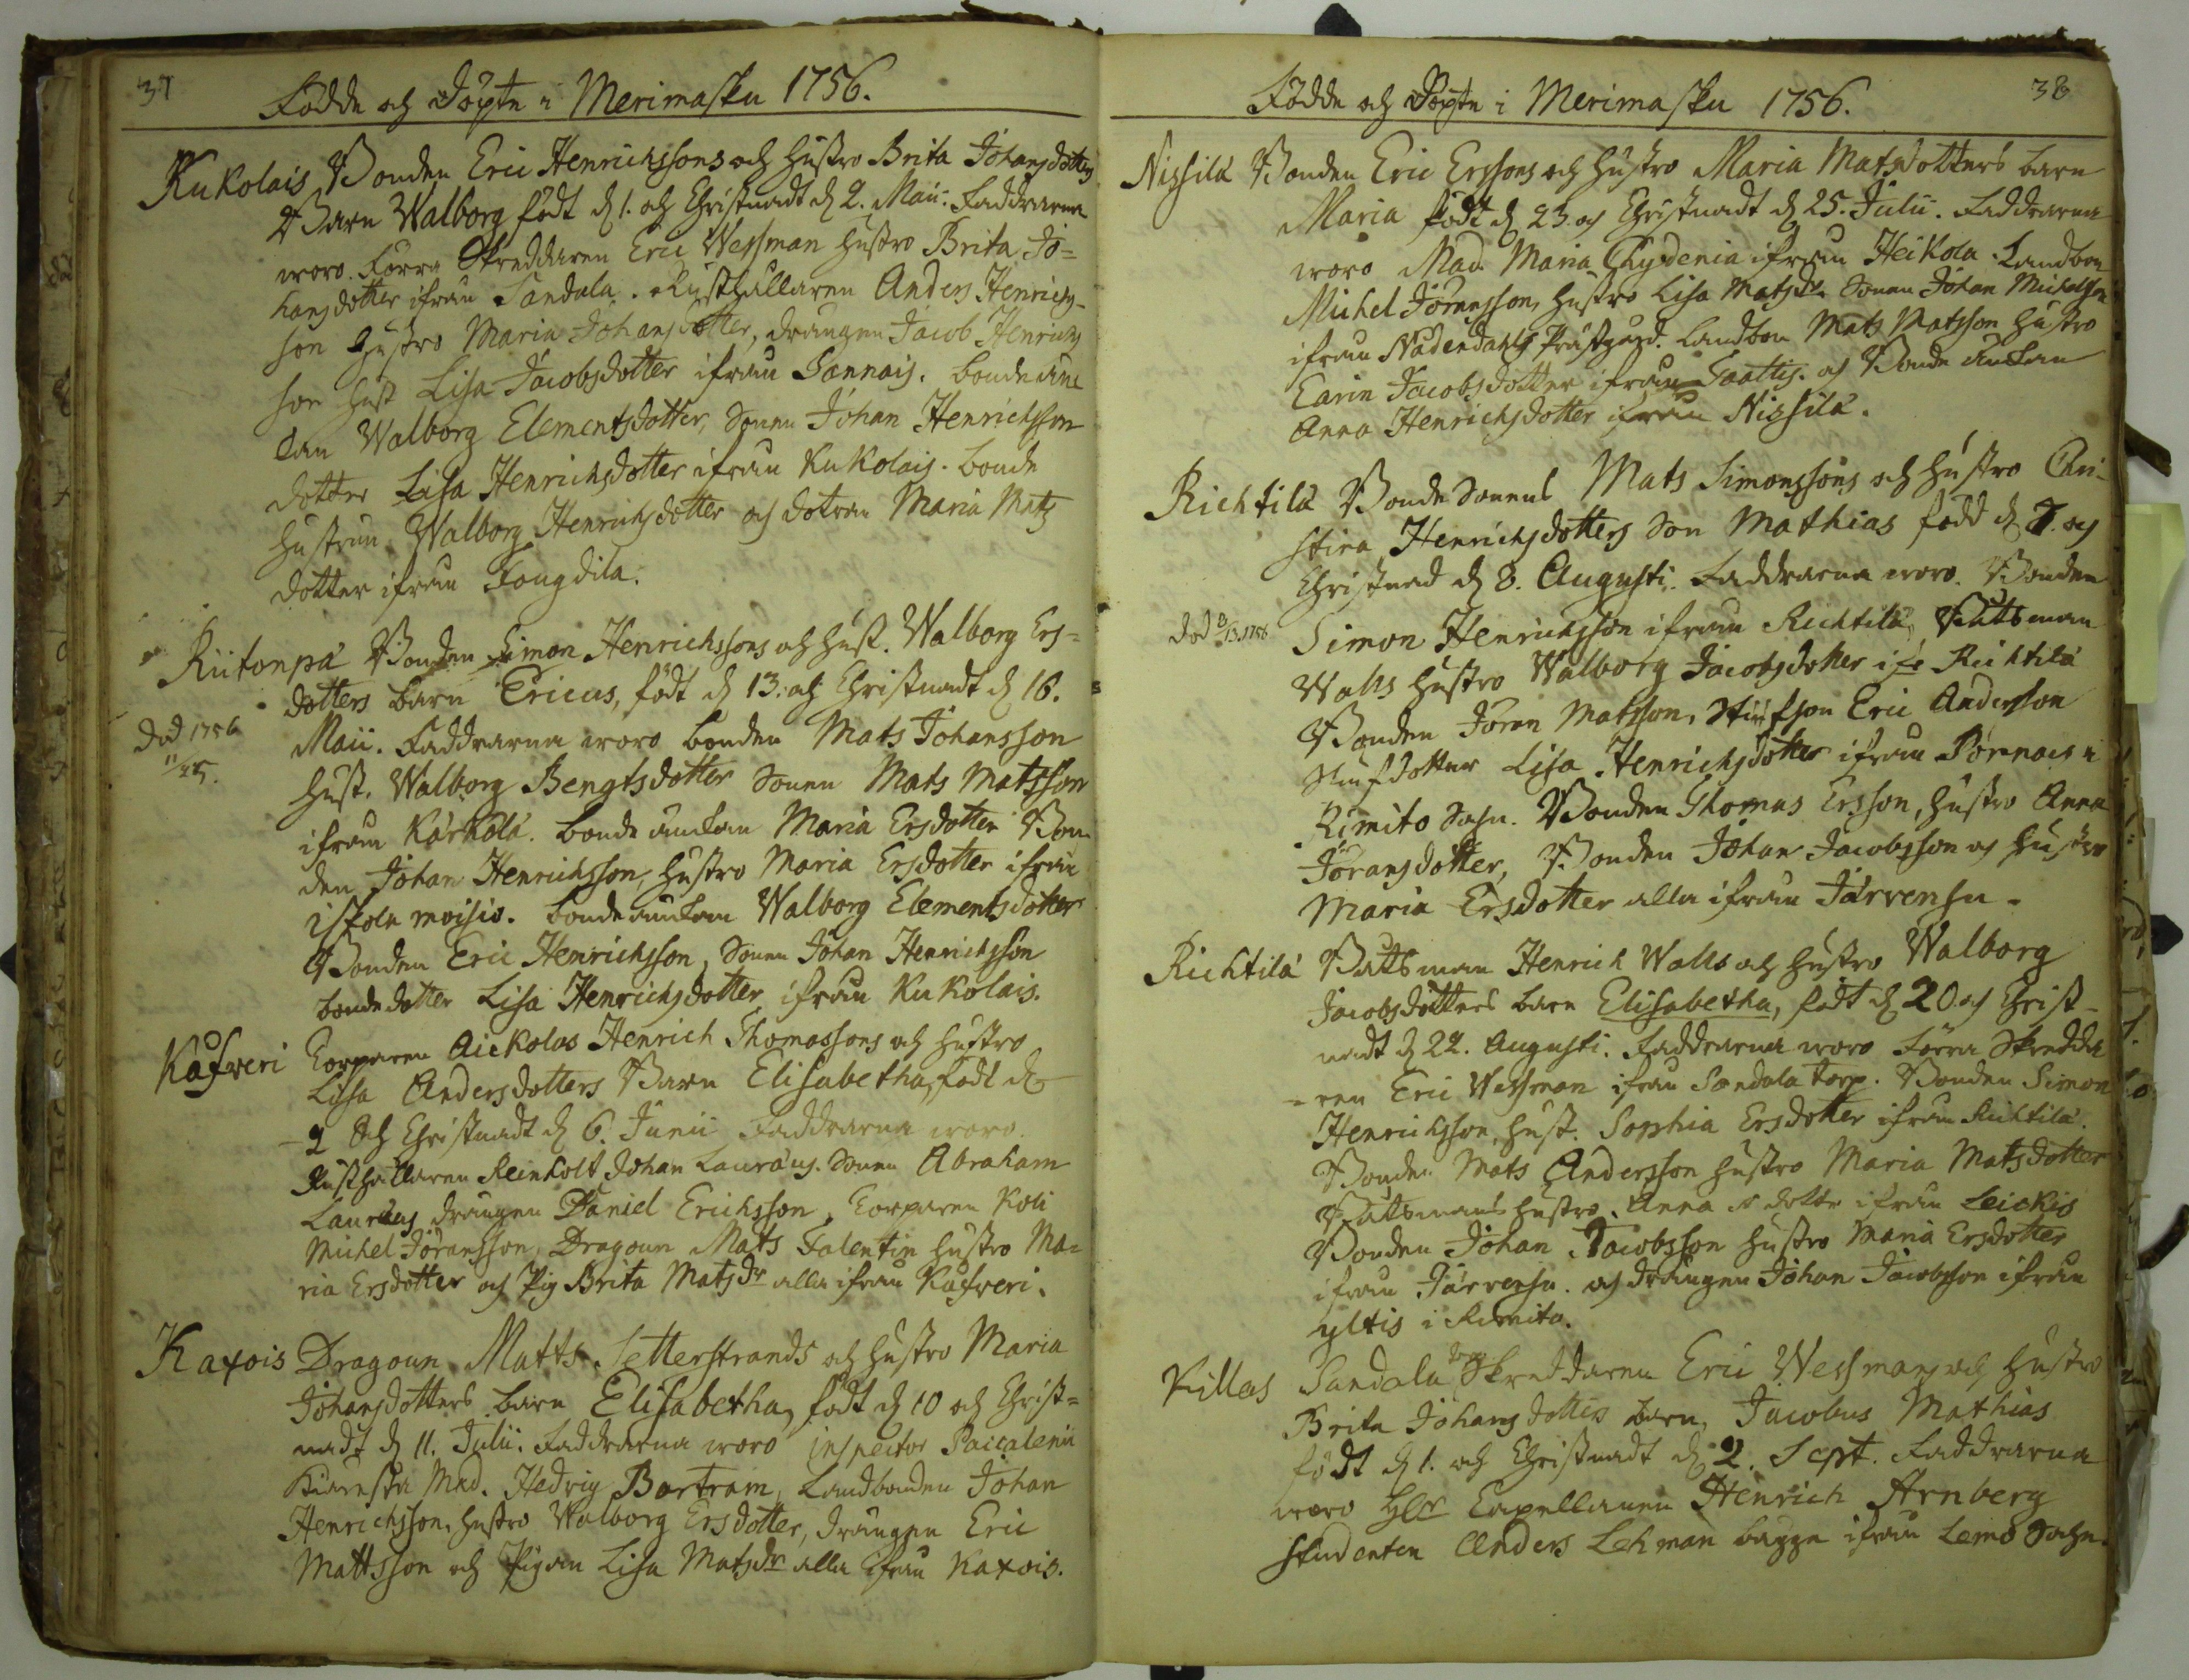 37
Födde och Döpte i Merimasku 1756.
Kukolais Bonden Eric Henrichssons och Hustro Brita Johansdotters
Barn Walborg födt d 1. och Christnadt d 2. Maii. Faddrarna
woro. Förra Skreddaren Eric Wessman Hustro Brita Jo=
hansdotter ifrån Sandala. Rusthållaren Anders Henrichs-
son Hustro Maria Johansdotter, drängen Jacob Henrichs
son Hust Lisa Jacobsdotter ifrån Sannais. bonde äne
kan Walborg Clementsdotter, Sonen Johan Henrichsson
dotter Lisa Henrichsdotter ifrån Kukolais. bonde
hustrun Walborg Henrichsdotter och dotran Maria Mats
dotter ifrån Fougdila.
Riitonpä Bonden Simon Henrichssons och Hust. Walborg Ers=
dotters barn Ericus, födt d 13. och Christnadt d 16.
död 1756
Maii. Faddrarna woro bonden Mats Johansson
Hust. Walborg Bengtsdotter Sonen Mats Matsson
ifrån Kärkölä. bonde änckan Maria Ersdotter Bon
den Johan Henrichsson, Hustro Maria Ersdotter ifrån
iskola moisio. bonde änckan Walborg Clementsdotter
Bonden Eric Henrichsson, Sonen Johan Henrichsson
bonde dotter Lisa Henrichsdotter ifrån Kukolais.
Kafveri Torparen Aickolas Henrich Thomassons och Hustro
Lisa Andersdotters Barn Elisabetha, födt d
2 och Christnadt d 6. Junii Faddrarna woro.
Rusthållaren Reinholt Johan Lauræus. Sonen Abraham
Lauræus drängen Daniel Erichsson, Torparen Koli
Michel Jöransson, Dragoun Mats Falentin Hustro Ma=
ria Ersdotter och Pig Brita Matsdr alla ifrån Kafveri.
Kaxois Dragoun Matts Setterstrands och Hustro Maria
Johansdotters barn Elisabetha, födt d 10 och Christ=
nadt d 11. Julii. Faddrarna woro inspector Paccalenii
Kiäresta Mad. Hedvig Bartram, Landbonden Johan
Henrichsson, Hustro Walborg Ersdotter, drängen Eric
Mattsson och Pigan Lisa Matsdr alla ifrån Kaxois.
38
Födde och Döpte i Merimasku 1756.
Nissilä Bonden Eric Erssons och Hustro Maria Matsdotters barn
Maria födt d 23. och Christnadt d 25. Julii. Faddrarna
woro Mad. Maria Chydenia ifrån Heikola. Landbon
Michel Jöransson, Hustro Lisa Matsdr. Sonen Johan Michelson
ifrån Nådendahls Prästgård. Landbon Mats Matsson Hustro
Carin Jacobsdotter ifrån Taattis. och Bonde änckan
Anna Henrichsdotter ifrån Nissilä.
Richtilä Bonde Sonens Mats Simonssons och Hustro Chri-
stina Henrichsdotters Son Mathias född d 7. och
Christnad d 8. Augusti. Faddrarna woro. Bonden
död 1756
Simon Henrichsson ifrån Richtilä, Båtsman
Walls Hustro Walborg Jacobsdotter ifr Richtilä
Bonden Jöran Matsson, Stiufson Eric Andersson
Stiufdotter Lisa Henrichsdotter ifrån Pörnais i
Rimito Sohn. Bonden Thomas Ersson, Hustro Anna
Jöransdotter, Bonden Johan Jacobsson och Hustro
Maria Ersdotter alla ifrån Järvensu.
Richtilä Båtsman Henrich Walls och Hustro Walborg
Jacobsdotters barn Elisabetha, födt d 20 och Christ-
nadt d 22. Augusti. Faddrarna woro Förra Skredda
ren Eric Wessman ifrån Sandala torp. Bonden Simon
Henrichsson, Hust. Sophia Ersdotter ifrån Richtilä.
Bonden Mats Andersson Hustro Maria Matsdotter
Båtsmans Hustro Anna dotter ifrån Leickis
Bonden Johan Jacobsson Hustro Maria Ersdotter
ifrån Järvensu. och drängen Johan Jacobsson ifrån
yltis i Rimito.
Killas Sandala torp Skreddaren Eric Wessmans och Hustro
Brita Johansdotters barn, Jacobus Mathias
födt d 1. och Christnadt d 2. Sept. Faddrarna
woro Hlr Capellanen Henrich Arnberg
Studenten Anders Lehman bagge ifrån Lemo Sohn.